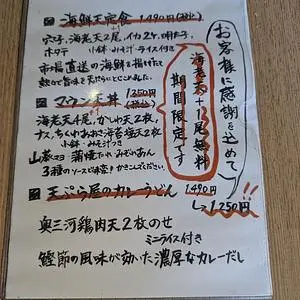 海鮮天定食 1,490円(税込)
穴子、海老天2尾、イカ2ケ、明太子、
ホタテ 小鉢・みそ汁・ライス付き
市場直送の海鮮を揚げたて
マウンテン丼 1350円(税込)
海老天4尾、かしわ天2枚、
ナス、ちくわ、あおさ海苔天2枚
小鉢・みそ汁つき
3種のソースに
天ぷら屋のカレーうどん 1,490円
→1,250円
奥三河鶏肉天2枚のせ
ミニライス付き
鰹節の風味が効いた濃厚なカレーだし
お客様に感謝を込めて
海老天+1尾無料
期間限定です